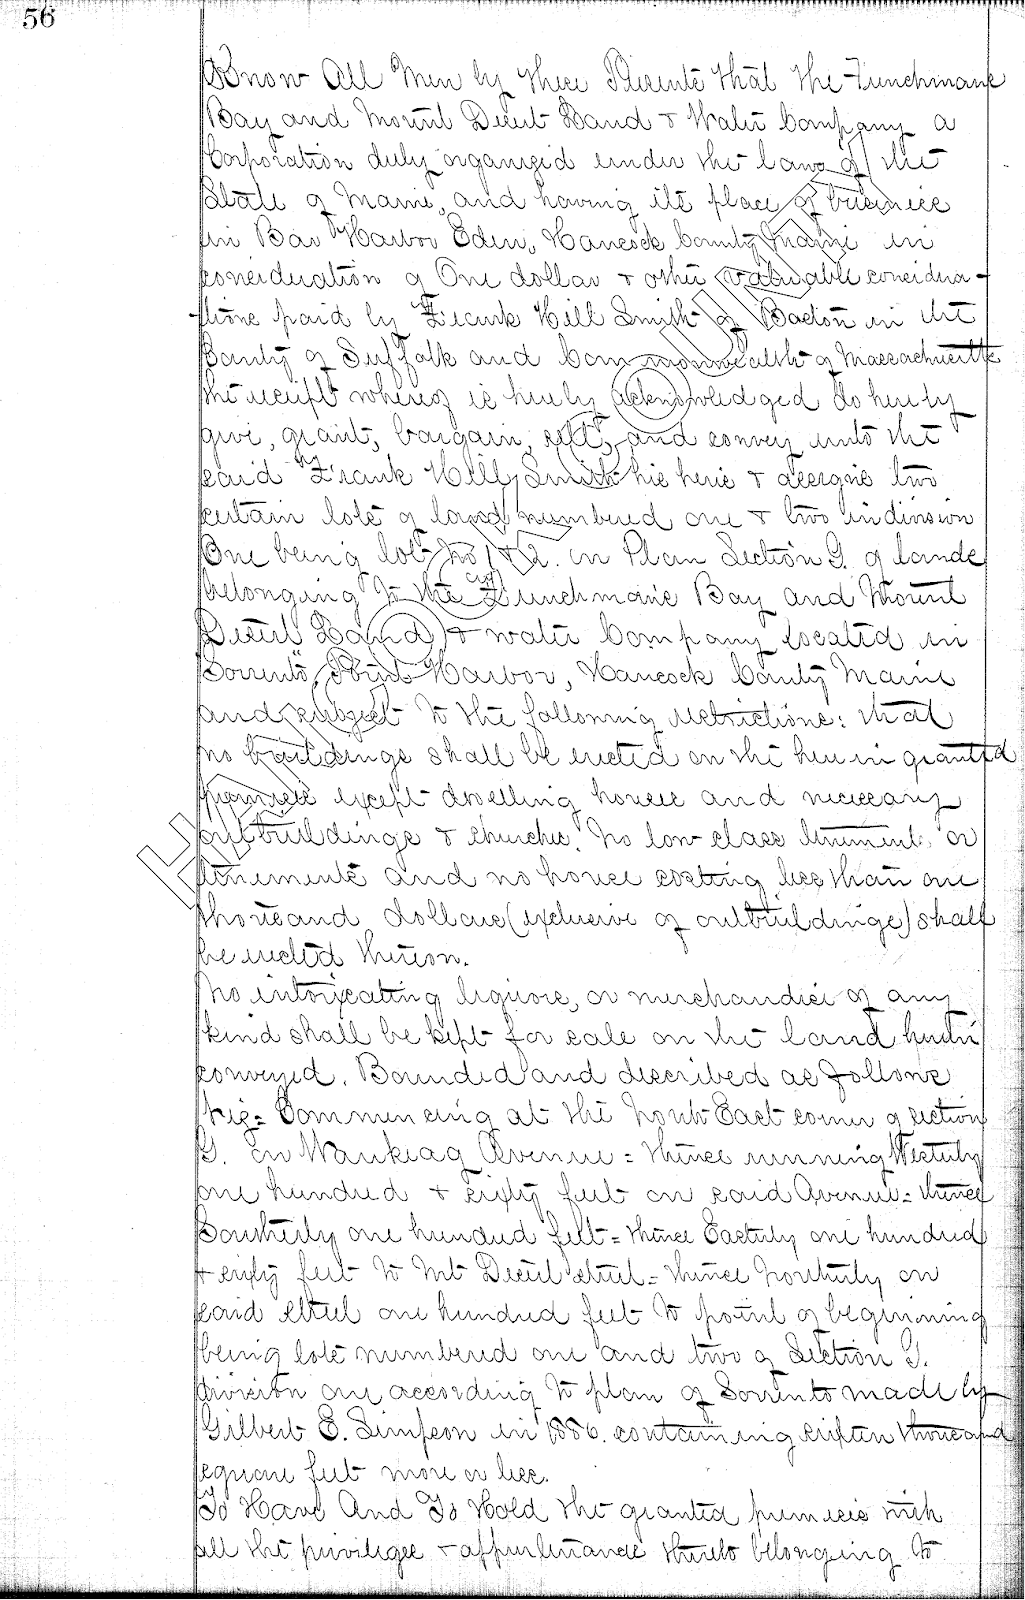 56
Know All Men by these Presents that the Frenchmans
Bay and Mount Desert Land & Water Company a
Corporation duly organized under the laws of the
State of Maine, and having its place of business
in Bar Harbor Eden, Hancock County Maine in
consideration of One dollar & other valuable considera-
tions paid by Frank Hill Smith of Boston in the
County of Suffolk and Commonwealth of Massachusetts
the receipt whereof is hereby acknowledged do hereby
give, grant, bargain, sell, and convey unto the
said Frank Hill Smith his heirs & assigns two
certain lots of land numbered one & two in division
One being lots No 1 & 2. on Plan Section G. of lands
belonging to the Frenchmans Bay and Mount
Desert Land & water Company located in
Sorrento, Point Harbor, Hancock County Maine
and subject to the following restrictions: that
no buildings shall be erected on the herein granted
premises except dwelling houses and necessary
outbuildings & churches. No low class tenement or
tenements and no house costing less than one
thousand dollars (exclusive of outbuildings) shall
be erected thereon.
No intoxicating liquors, or merchandise of any
kind shall be kept for sale on the land herein
conveyed. Bounded and described as follows
viz= Commencing at the North East corner of section
G. on Waukeag Avenue = thence running Westerly
one hundred & sixty feet on said Avenue = thence
Southerly one hundred feet = thence Easterly one hundred
& sixty feet to Mt Desert street = thence Northerly on
said street one hundred feet to point of beginning
being lots numbered one and two of Section G.
division one according to plan of Sorrento made by
Gilbert E. Simpson in 1886. containing sixteen thousand
square feet more or less.
To Have And To Hold the granted premises with
all the privileges & appurtenances thereto belonging to